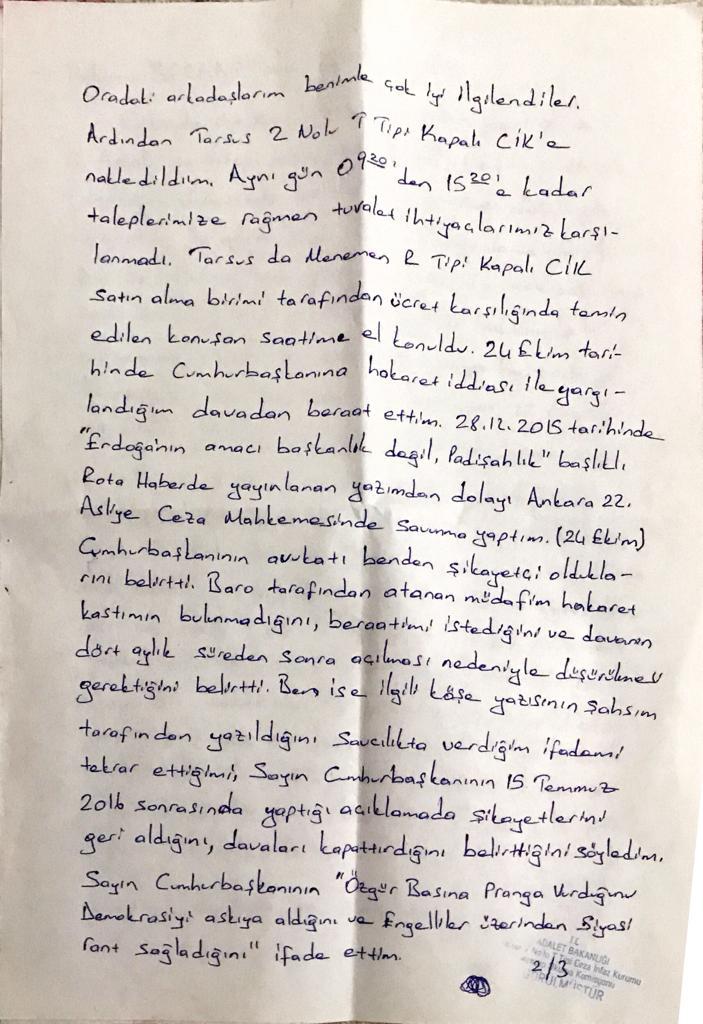 Oradaki arkadaşlarım benimle çok iyi ilgilendiler.
Ardından Tarsus 2 Nolu T Tipi Kapalı CİK'e
nakledildim. Aynı gün 09²⁰'den 15²⁰'e kadar
taleplerimize rağmen tuvalet ihtiyaçlarımız karşı-
lanmadı. Tarsus da Menemen R Tipi Kapalı CİK
satın alma birimi tarafından ücret karşılığında temin
edilen konuşan saatime el konuldu. 24 Ekim tari-
hinde Cumhurbaşkanına hakaret iddiası ile yargı-
landığım davadan beraat ettim. 28.12.2015 tarihinde
"Erdoğa'nın amacı başkanlık değil, Padişahlık" başlıklı
Rota Haberde yayınlanan yazımdan dolayı Ankara 22.
Asliye Ceza Mahkemesinde savunma yaptım. (24 Ekim)
Cumhurbaşkanının avukatı benden şikayetçi oldukla-
rını belirtti. Baro tarafından atanan müdafim hakaret
kastımın bulunmadığını, beraatimi istediğini ve davanın
dört aylık süreden sonra açılması nedeniyle düşürülmesi
gerektiğini belirtti. Ben ise ilgili köşe yazısının şahsım
tarafından yazıldığını Savcılıkta verdiğim ifademi
tekrar ettiğimi, Sayın Cumhurbaşkanının 15 Temmuz
2016 sonrasında yaptığı açıklamada şikayetlerini
geri aldığını, davaları kapattırdığını belirttiğini söyledim.
Sayın Cumhurbaşkanının "Özgür Basına Pranga Vurduğunu
Demokrasiyi askıya aldığını ve Engelliler üzerinden Siyasi
rant sağladığını" ifade ettim.
2/3
T.C.
ADALET BAKANLIĞI
Tipi Ceza İnfaz Kurumu
Komisyonu
GÖRÜLMÜŞTÜR